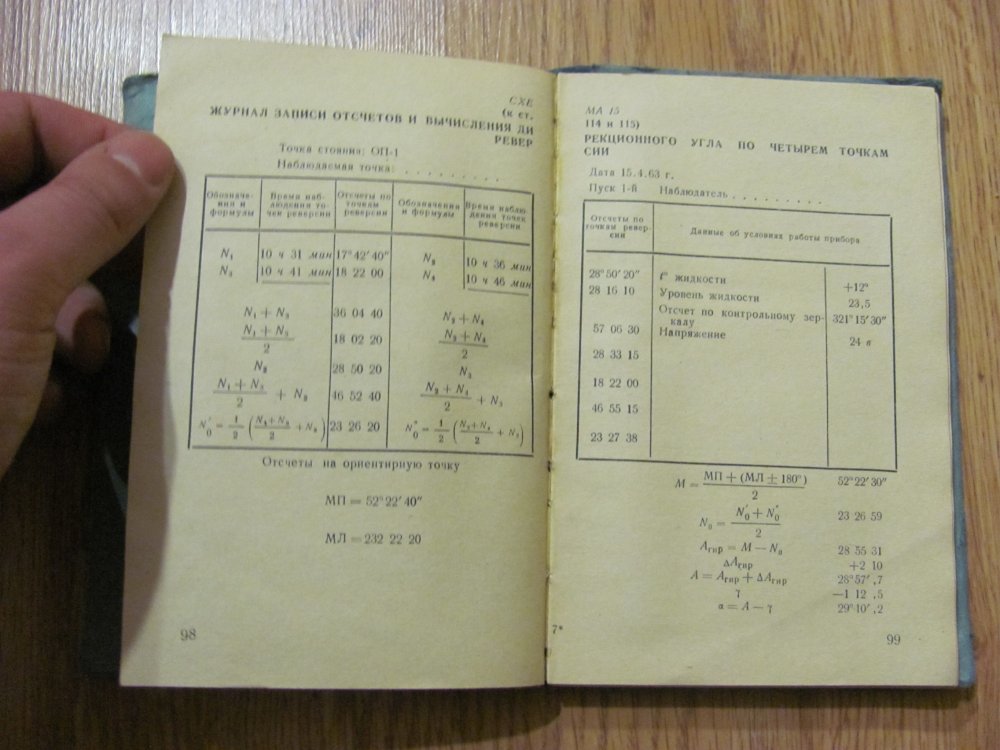 СХЕ
(к ст.
ЖУРНАЛ ЗАПИСИ ОТСЧЕТОВ И ВЫЧИСЛЕНИЯ ДИ
РЕВЕР
Точка стояния: ОП-1
Наблюдаемая точка: . . . . . . . . .
Обозначения и формулы
Время наблюдения точек реверсии
Отсчеты по точкам реверсии
Обозначения и формулы
Время наблюдения точек реверсии
N₁ 10 ч 31 мин 17°42′40″ N₂ 10 ч 36 мин
N₃ 10 ч 41 мин 18 22 00 N₄ 10 ч 46 мин
N₁ + N₃ 36 04 40 N₂ + N₄
(N₁ + N₃)/2 18 02 20 (N₂ + N₄)/2
N₂ 28 50 20 N₃
(N₁ + N₃)/2 + N₂ 46 52 40 (N₂ + N₄)/2 + N₃
N′₀ = 1/2 ((N₁+N₃)/2 + N₂) 23 26 20 N″₀ = 1/2 ((N₂+N₄)/2 + N₃)
Отсчеты на ориентирную точку
МП = 52°22′40″
МЛ = 232 22 20
98
МА 15
114 и 115)
РЕКЦИОННОГО УГЛА ПО ЧЕТЫРЕМ ТОЧКАМ
СИИ
Дата 15.4.63 г.
Пуск 1-й Наблюдатель . . . . . . . . .
Отсчеты по
точкам ревер-
сии
Данные об условиях работы прибора
28°50′20″ t° жидкости +12°
28 16 10 Уровень жидкости 23,5
Отсчет по контрольному зер-
калу 321°15′30″
57 06 30 Напряжение 24 в
28 33 15
18 22 00
46 55 15
23 27 38
M = (МП + (МЛ ± 180°))/2 52°22′30″
N₀ = (N′₀ + N″₀)/2 23 26 59
Aгир = M — N₀ 28 55 31
ΔAгир +2 10
A = Aгир + ΔAгир 28°57′,7
γ —1 12 ,5
α = A — γ 29°10′,2
7*
99